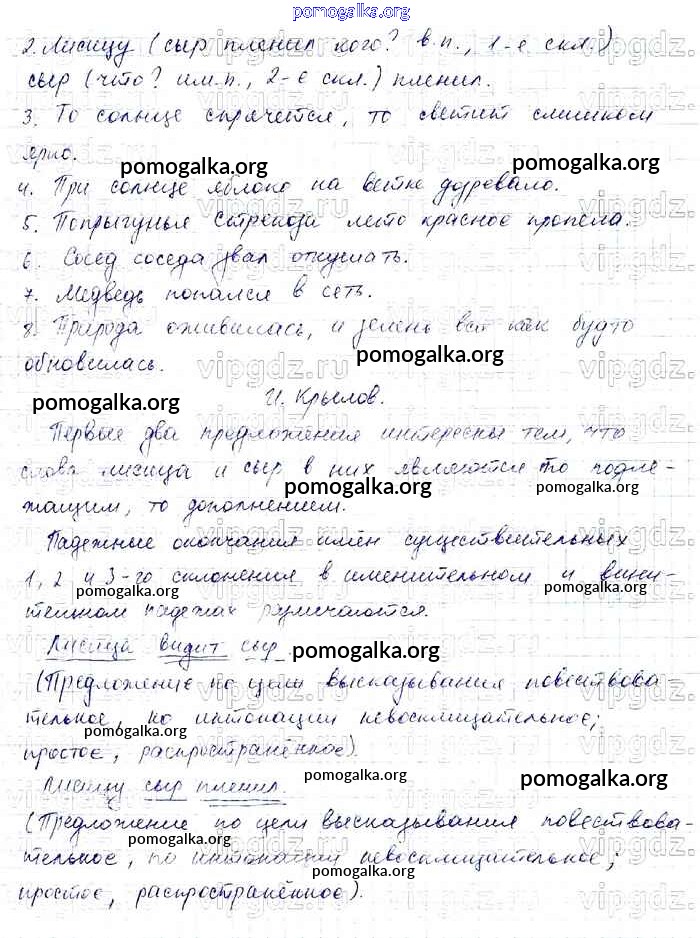 pomogalka.org
2. Лисицу (сыр пленил кого? в.п., 1-е скл.)
сыр (что? им.п., 2-е скл.) пленил.
3. То солнце спрячется, то светит слишком
ярко.
pomogalka.org
4. При солнце яблоко на ветке дозревало.
5. Попрыгунья Стрекоза лето красное пропела.
6. Сосед соседа звал откушать.
7. Медведь попался в сеть.
8. Природа оживилась, и зелень вся как будто
обновилась.
pomogalka.org
И. Крылов.
pomogalka.org
Первые два предложения интересны тем, что
слова лисица и сыр в них являются то подле-
pomogalka.org
pomogalka.org
жащим, то дополнением.
Падежные окончания имён существительных
1, 2 и 3-го склонения в именительном и вини-
pomogalka.org
тельном падежах различаются.
Лисица видит сыр
pomogalka.org
(Предложение по цели высказывания повествова-
тельное, по интонации невосклицательное;
pomogalka.org
простое, распространённое).
pomogalka.org
pomogalka.org
Лисицу сыр пленил.
(Предложение по цели высказывания повествова-
pomogalka.org
тельное, по интонации невосклицательное;
pomogalka.org
простое, распространённое).
vipgdz.ru